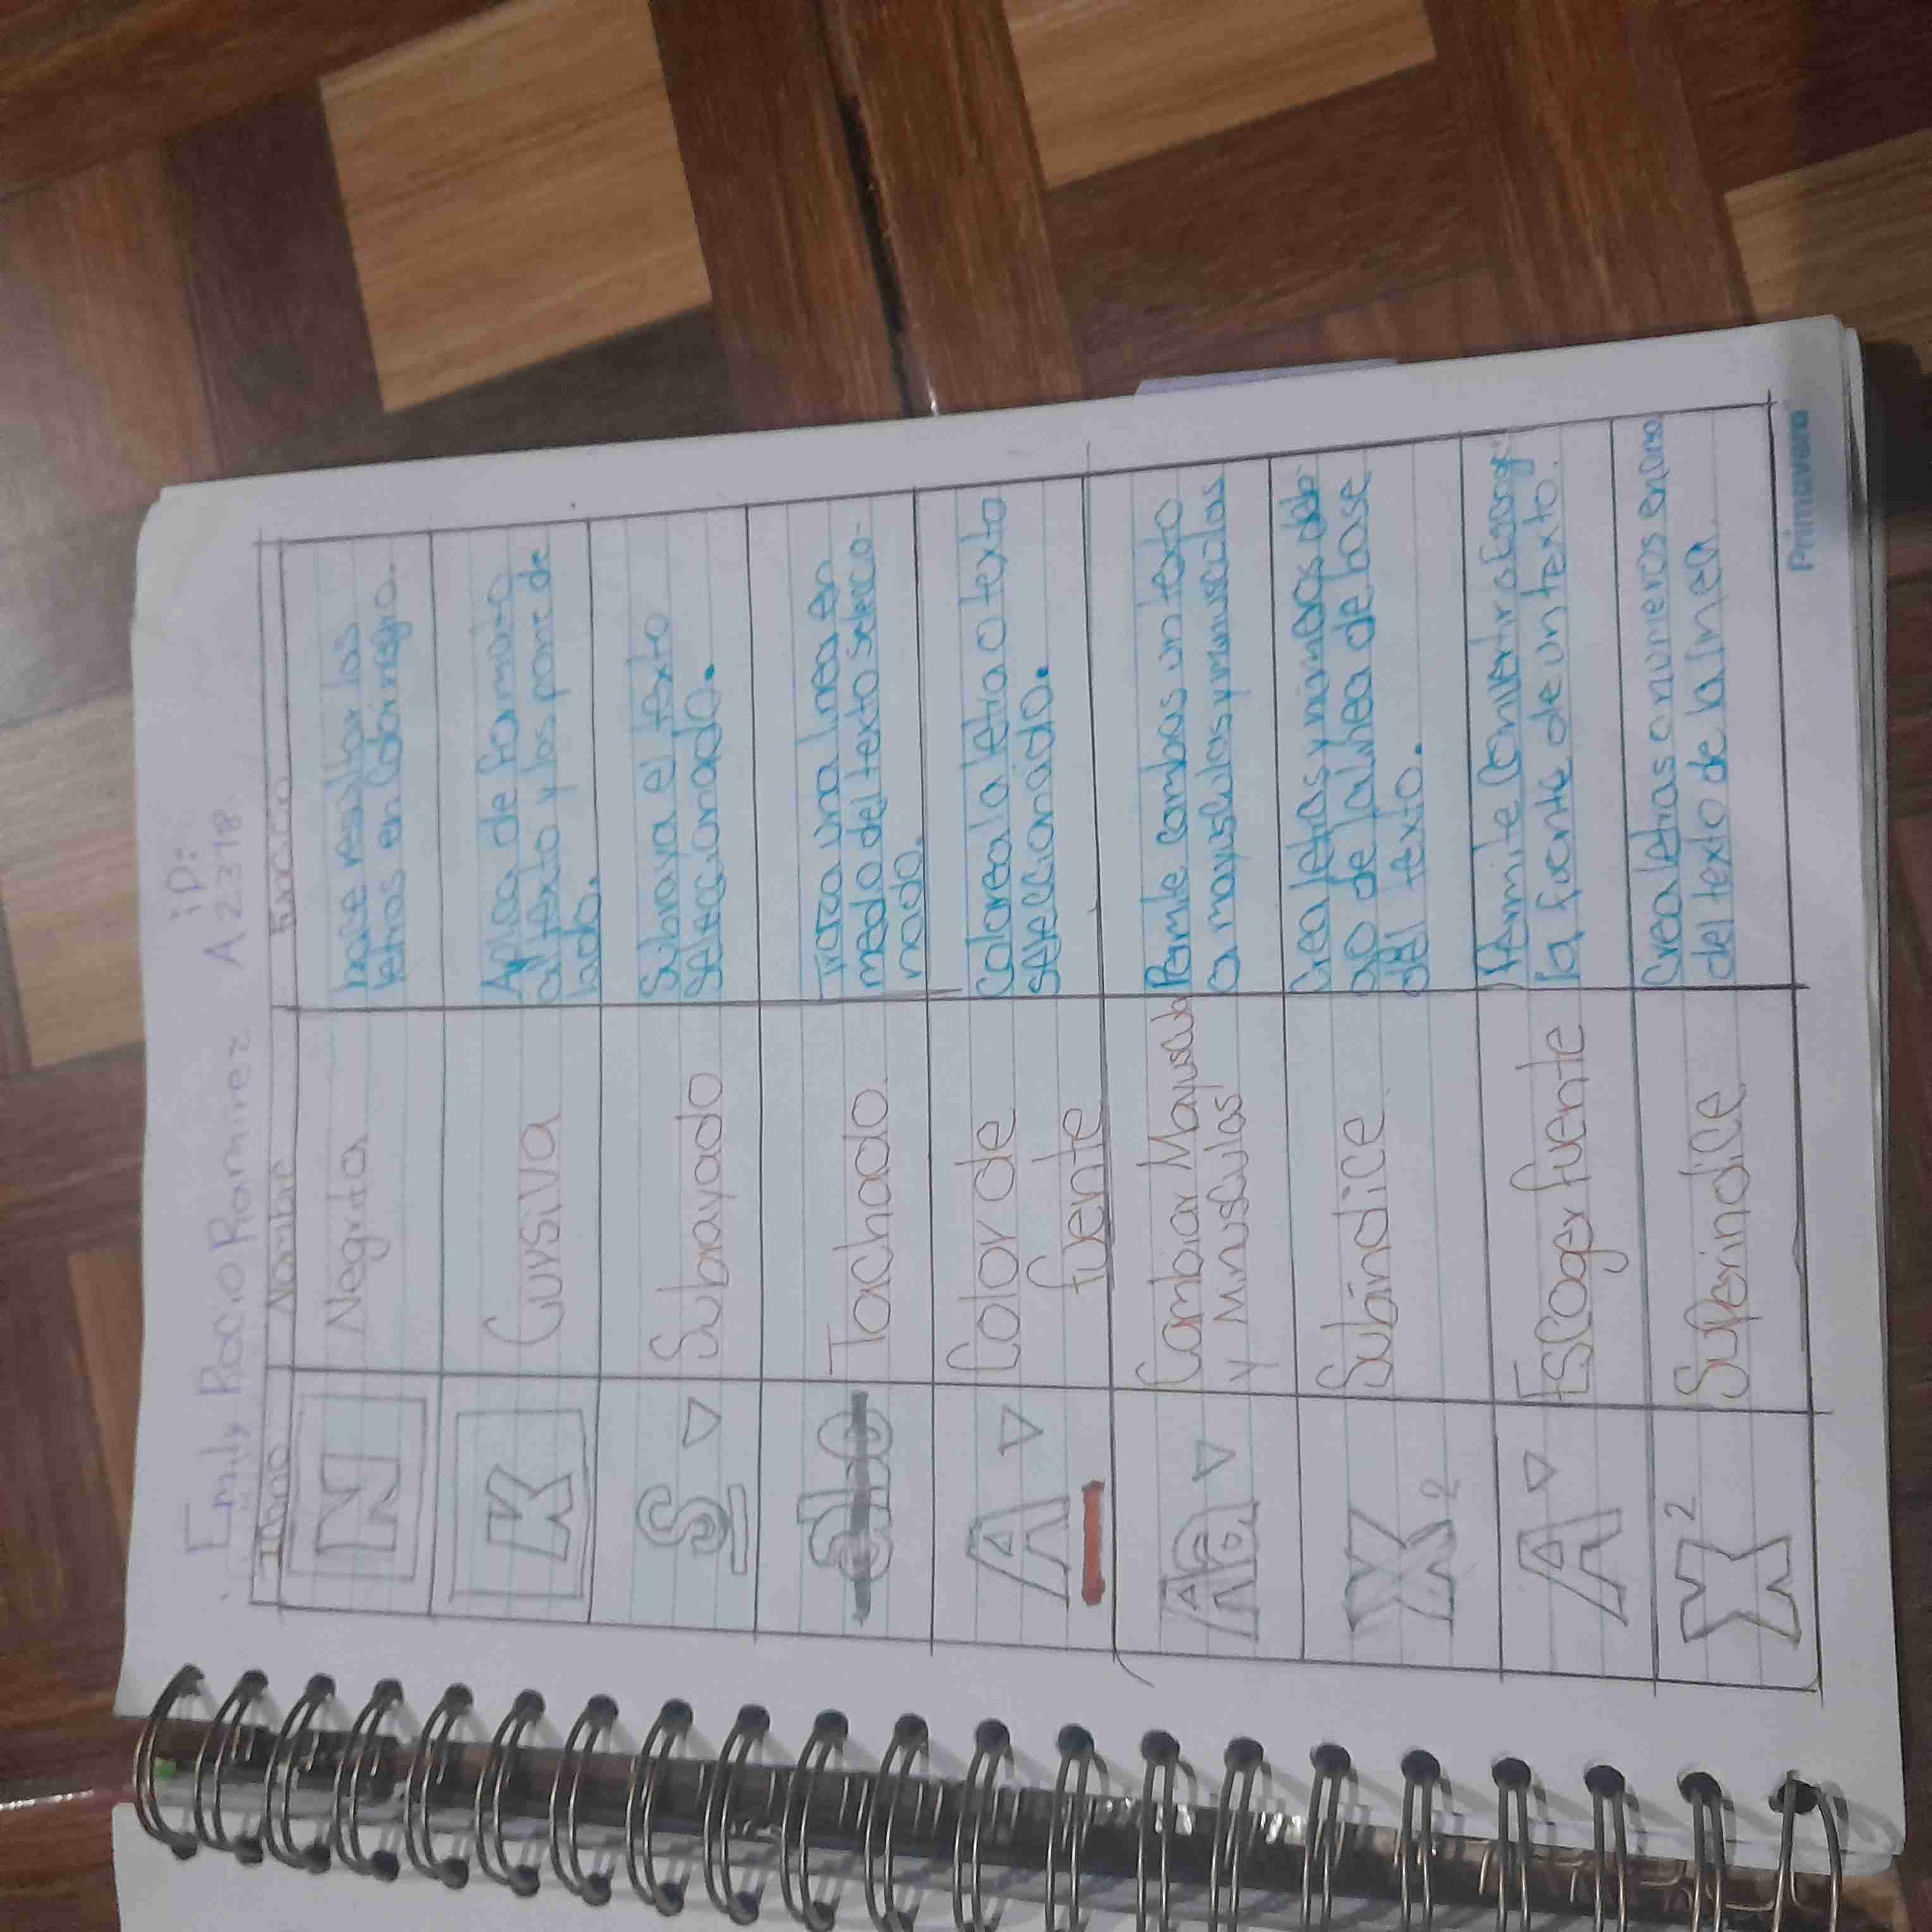 Emily Rocio Ramirez iD:
A22378
Icono Nombre Función
N Negrita hace resaltar las
letras en Color negro.
K Cursiva Aplica de formato
al texto y los pone de
lado.
S Subrayado Subraya el texto
seleccionado.
abc Tachado Traza una linea en
medio del texto seleccio-
nado.
A Color de
fuente
Colorea la letra o texto
seleccionado.
Aa Cambiar Mayuscula
y Minusculas
Permite cambias un texto
a mayusculas y minusculas
X2 Subíndice Crea letras y números deb-
ajo de la linea de base
del texto.
A Escoger fuente Permite Convertir o Escoger
la fuente de un texto.
X2 Superindice Crea letras o numeros encima
del texto de la linea.
Primavera